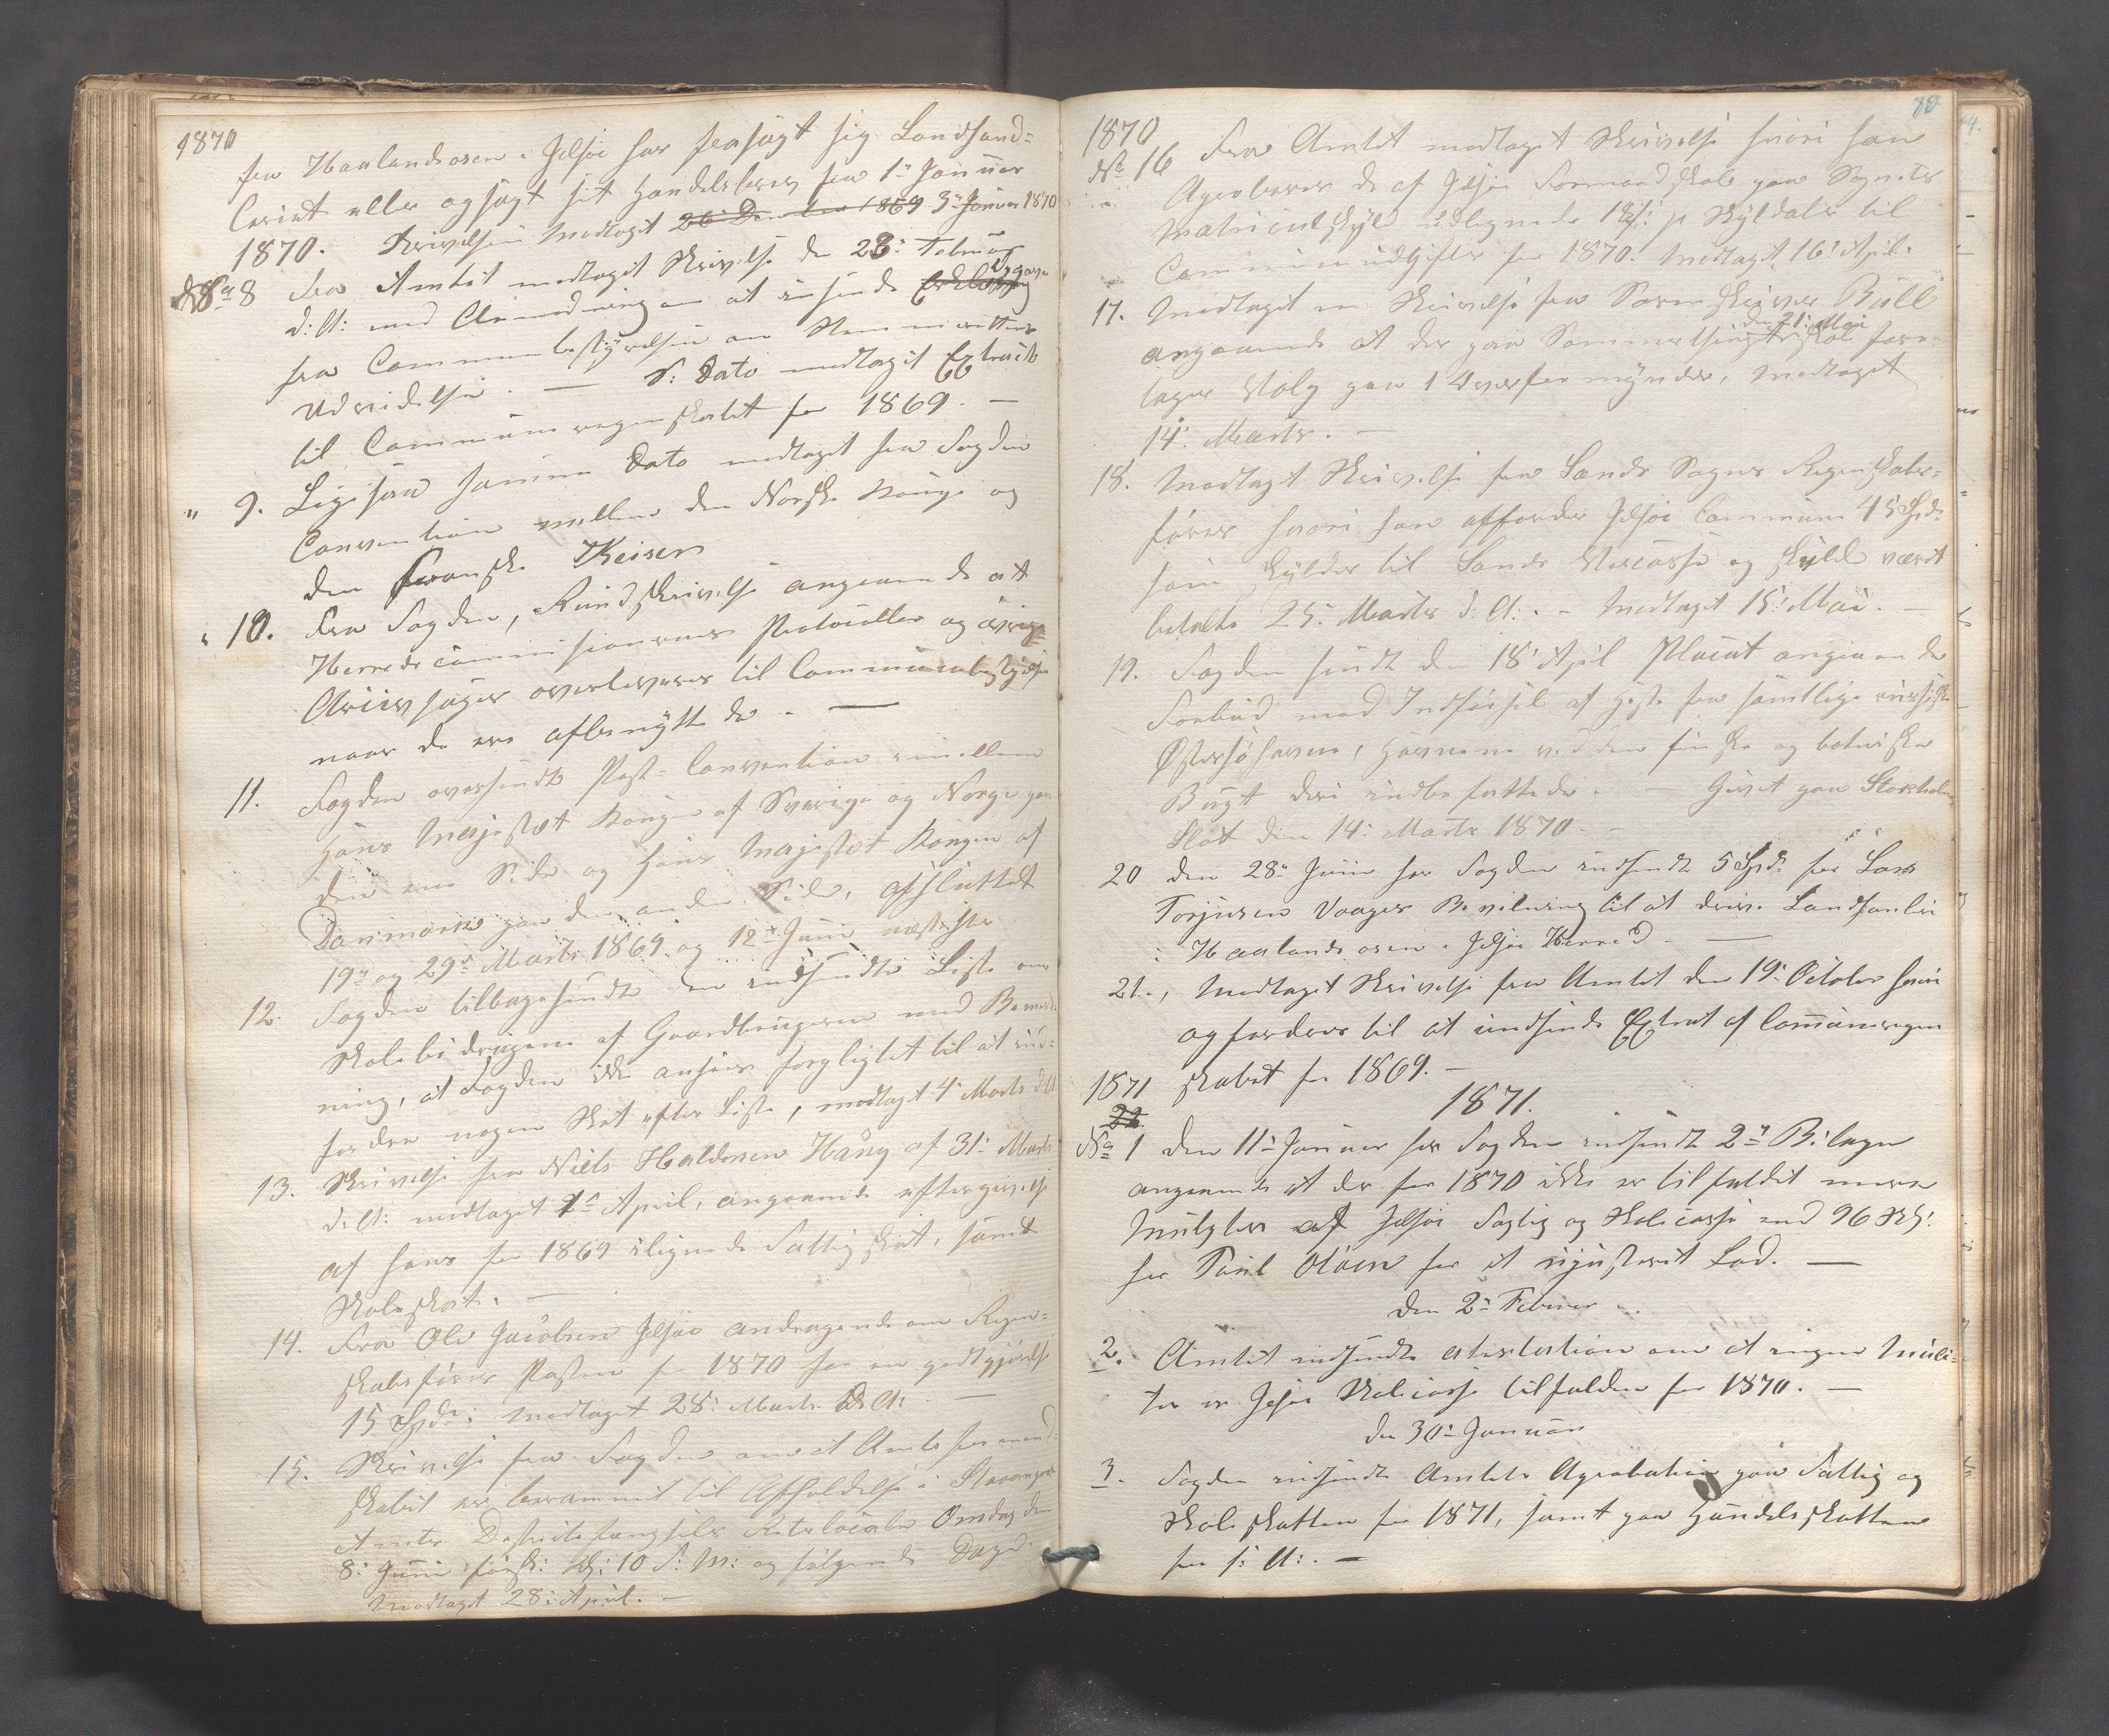 1870
fra Haalandsosen i Jelsøe har frasagt sig Landhand=
leriet eller opsagt sit Handelsbrev fra 1ste Januar
1870. Skrivelsen Modtaget 26 December 1869 3die Januar 1870
No 8 Fra Amtet modtaget Skrivelse den 28: Februar
d: A: med Anmodning om at insende Erklæring Opgave
fra Communebestyrelsen om Stemmerettens
Udvidelse. — S: Dato modtaget Extract
til Communeregenskabet for 1869. —
" 9. Ligesaa samme Dato modtaget fra Fogden
Convention mellem den Norske Konge og
den franske Keiser
" 10. Fra Fogden, Rundskrivelse angaaende at
Herredscommissionernes Protocoller og øvrige
Arcivsager overleveres til Communebestyrelsen
naar de ere afbenyttede. —
11. Fogden oversendte Post-Convention imellem
Hans Majestæt Kongen af Sverige og Norge paa
den ene Side og Hans Majestæt Kongen af
Danmark paa den anden Side, afsluttet
19de og 29de Marts 1869 og 12te Juni næstefter
12. Fogden tilbagesendte den indsendte Liste om
Skolebidragene af Gaardbrugerne med Bemærk-
ning, at Fogden ikke ansees forpligtet til at ind-
fordre nogen Skat efter Liste, modtaget 4 Marts d A
13. Skrivelse fra Niels Haldorsen Haug af 31: Marts
d: A: modtaget 1ste April, angaaende eftergivelse
af hans for 1869 ilignede Fattigskat, samt
Skoleskat. —
14. Fra Ole Jacobsen Jelsøe andragende om Regen-
skabsfører Posten for 1870 for en godtgjørelse
15 Spd: modtaget 28: Marts d A: —
15. Skrivelse fra Fogden om at Amtsformand
skabet er berammet til Afholdelse i Stavanger
Amts Destriktsfængsels Retslocale Onsdag den
8: Juni førsk: Kl: 10 F: M: og følgende Dage.
Modtaget 28: April. —
70
1870
No 16 Fra Amtet modtaget Skrivelse hvori han
Aproberer de af Jelsøe Formandskab paa Sognets
Matriculskyld udlignede 18 s: pr Skylddaler til
Communeudgifter for 1870. Modtaget 16: April.
17. Modtaget en Skrivelse fra Sorenskriver Bull
den 21: Mai
angaaende at der paa Sommerthinget skal fore-
tages Valg paa 1 Overformynder, modtaget
14: Marts. —
18. Modtaget Skrivelse fra Sands Sogns Regenskabs-
fører hvori han affordrer Jelsøe Commune 45 Spd:
som skyldes til Sands Veicasse og skulde været
betalte 25: Marts d: A: - Modtaget 15: Mai. —
19. Fogden sendt den 18: April Placat angaaende
Forbud mod Indførsel af Heste fra samtlige russiske
Østersjøhavne, Havnene ved den finske og botniske
Bugt deri indbefattede. — Givet paa Stokholms
Slot den 14: Marts 1870 —
20 den 28de Juni har Fogden indsendt 5 Spd: for Lars
Torjusen Vaages Bevilning til at drive Landhanleri
i Haalandsosen i Jelsøe Herred. —
21., Modtaget Skrivelse fra Amtet den 19: October hvori
opfordres til at indsende Extrat af Comúneregen
1871 skabet for 1869. —
1871.
22.
No 1 den 11te Januar har Fogden indsendt 2de Bilage
angaaende at der for 1870 ikke er tilfaldet mere
Mulgter af Jelsøe Fattig og Skolecasse end 96 Sk:
for Poul Olsen for et ujusteret Lod. —
den 2den Februar
2. Amtet indsendte atestation om at ingen Mulc-
ter er Jelsøe Skolecasse tilfalden for 1870. —
den 30te Januar
3. Fogden indsendte Amtets Aprobation paa Fattig og
Skoleskatten for 1871, samt paa Handelsskatten
for s: A:. —